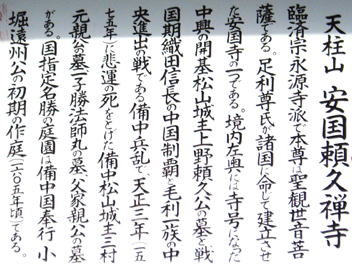 天柱山 安国頼久禅寺
臨済宗永源寺派で本尊は聖観世音菩
薩である。足利尊氏が諸国に命して建立させ
た安国寺の一つである。境内左奥には寺号になった
中興の開基松山城主上野頼久公の墓と戦
国期織田信長の中国制覇と毛利一族の中
央進出の戦である備中兵乱で、天正三年(一五
七五年)に悲運の死をとげた備中松山城主三村
元親公の墓一子勝法師丸の墓、父家親公の墓
がある。国指定名勝の庭園は備中国奉行小
堀遠州公の初期の作庭(一六〇五年頃)である。